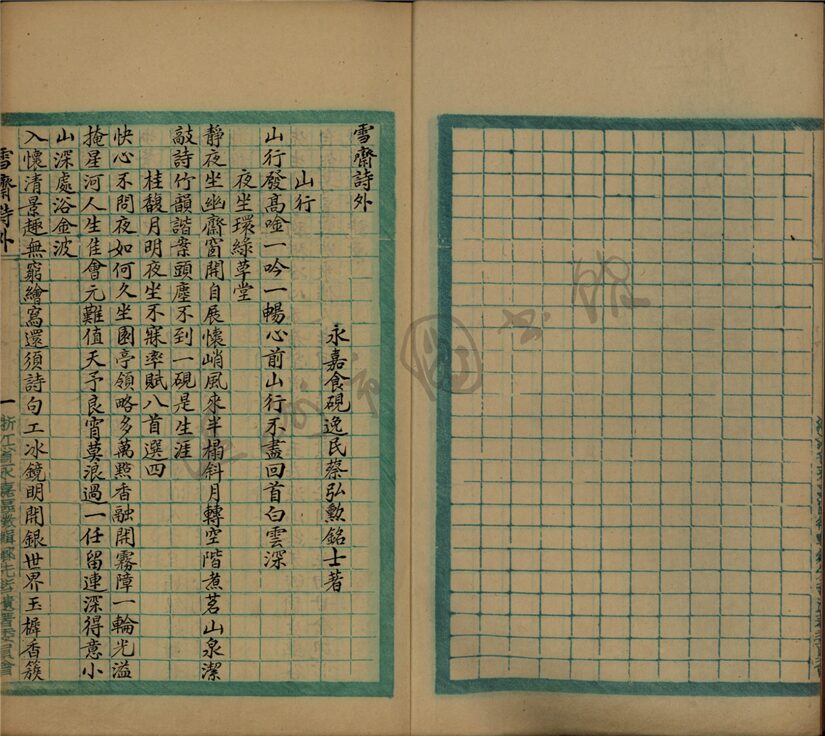 雪齋詩外
永嘉食硯逸民蔡弘勲銘士著
山行
山行發高唫一吟一暢心前山行不盡回首白雲深
夜坐環綠草堂
靜夜坐幽齋窗開自展懷峭風來半榻斜月轉空階煮茗山泉潔
敲詩竹韻諧案頭塵不到一硯是生涯
桂馥月明夜坐不寐率賦八首選四
快心不問夜如何久坐園亭領略多萬點香融開霧障一輪光溢
掩星河人生佳會元難值天予良宵莫浪過一任留連深得意小
山深處浴金波
入懷清景趣無窮繪寫還須詩句工冰鏡明開銀世界玉樨香簇
雪齋詩外
一